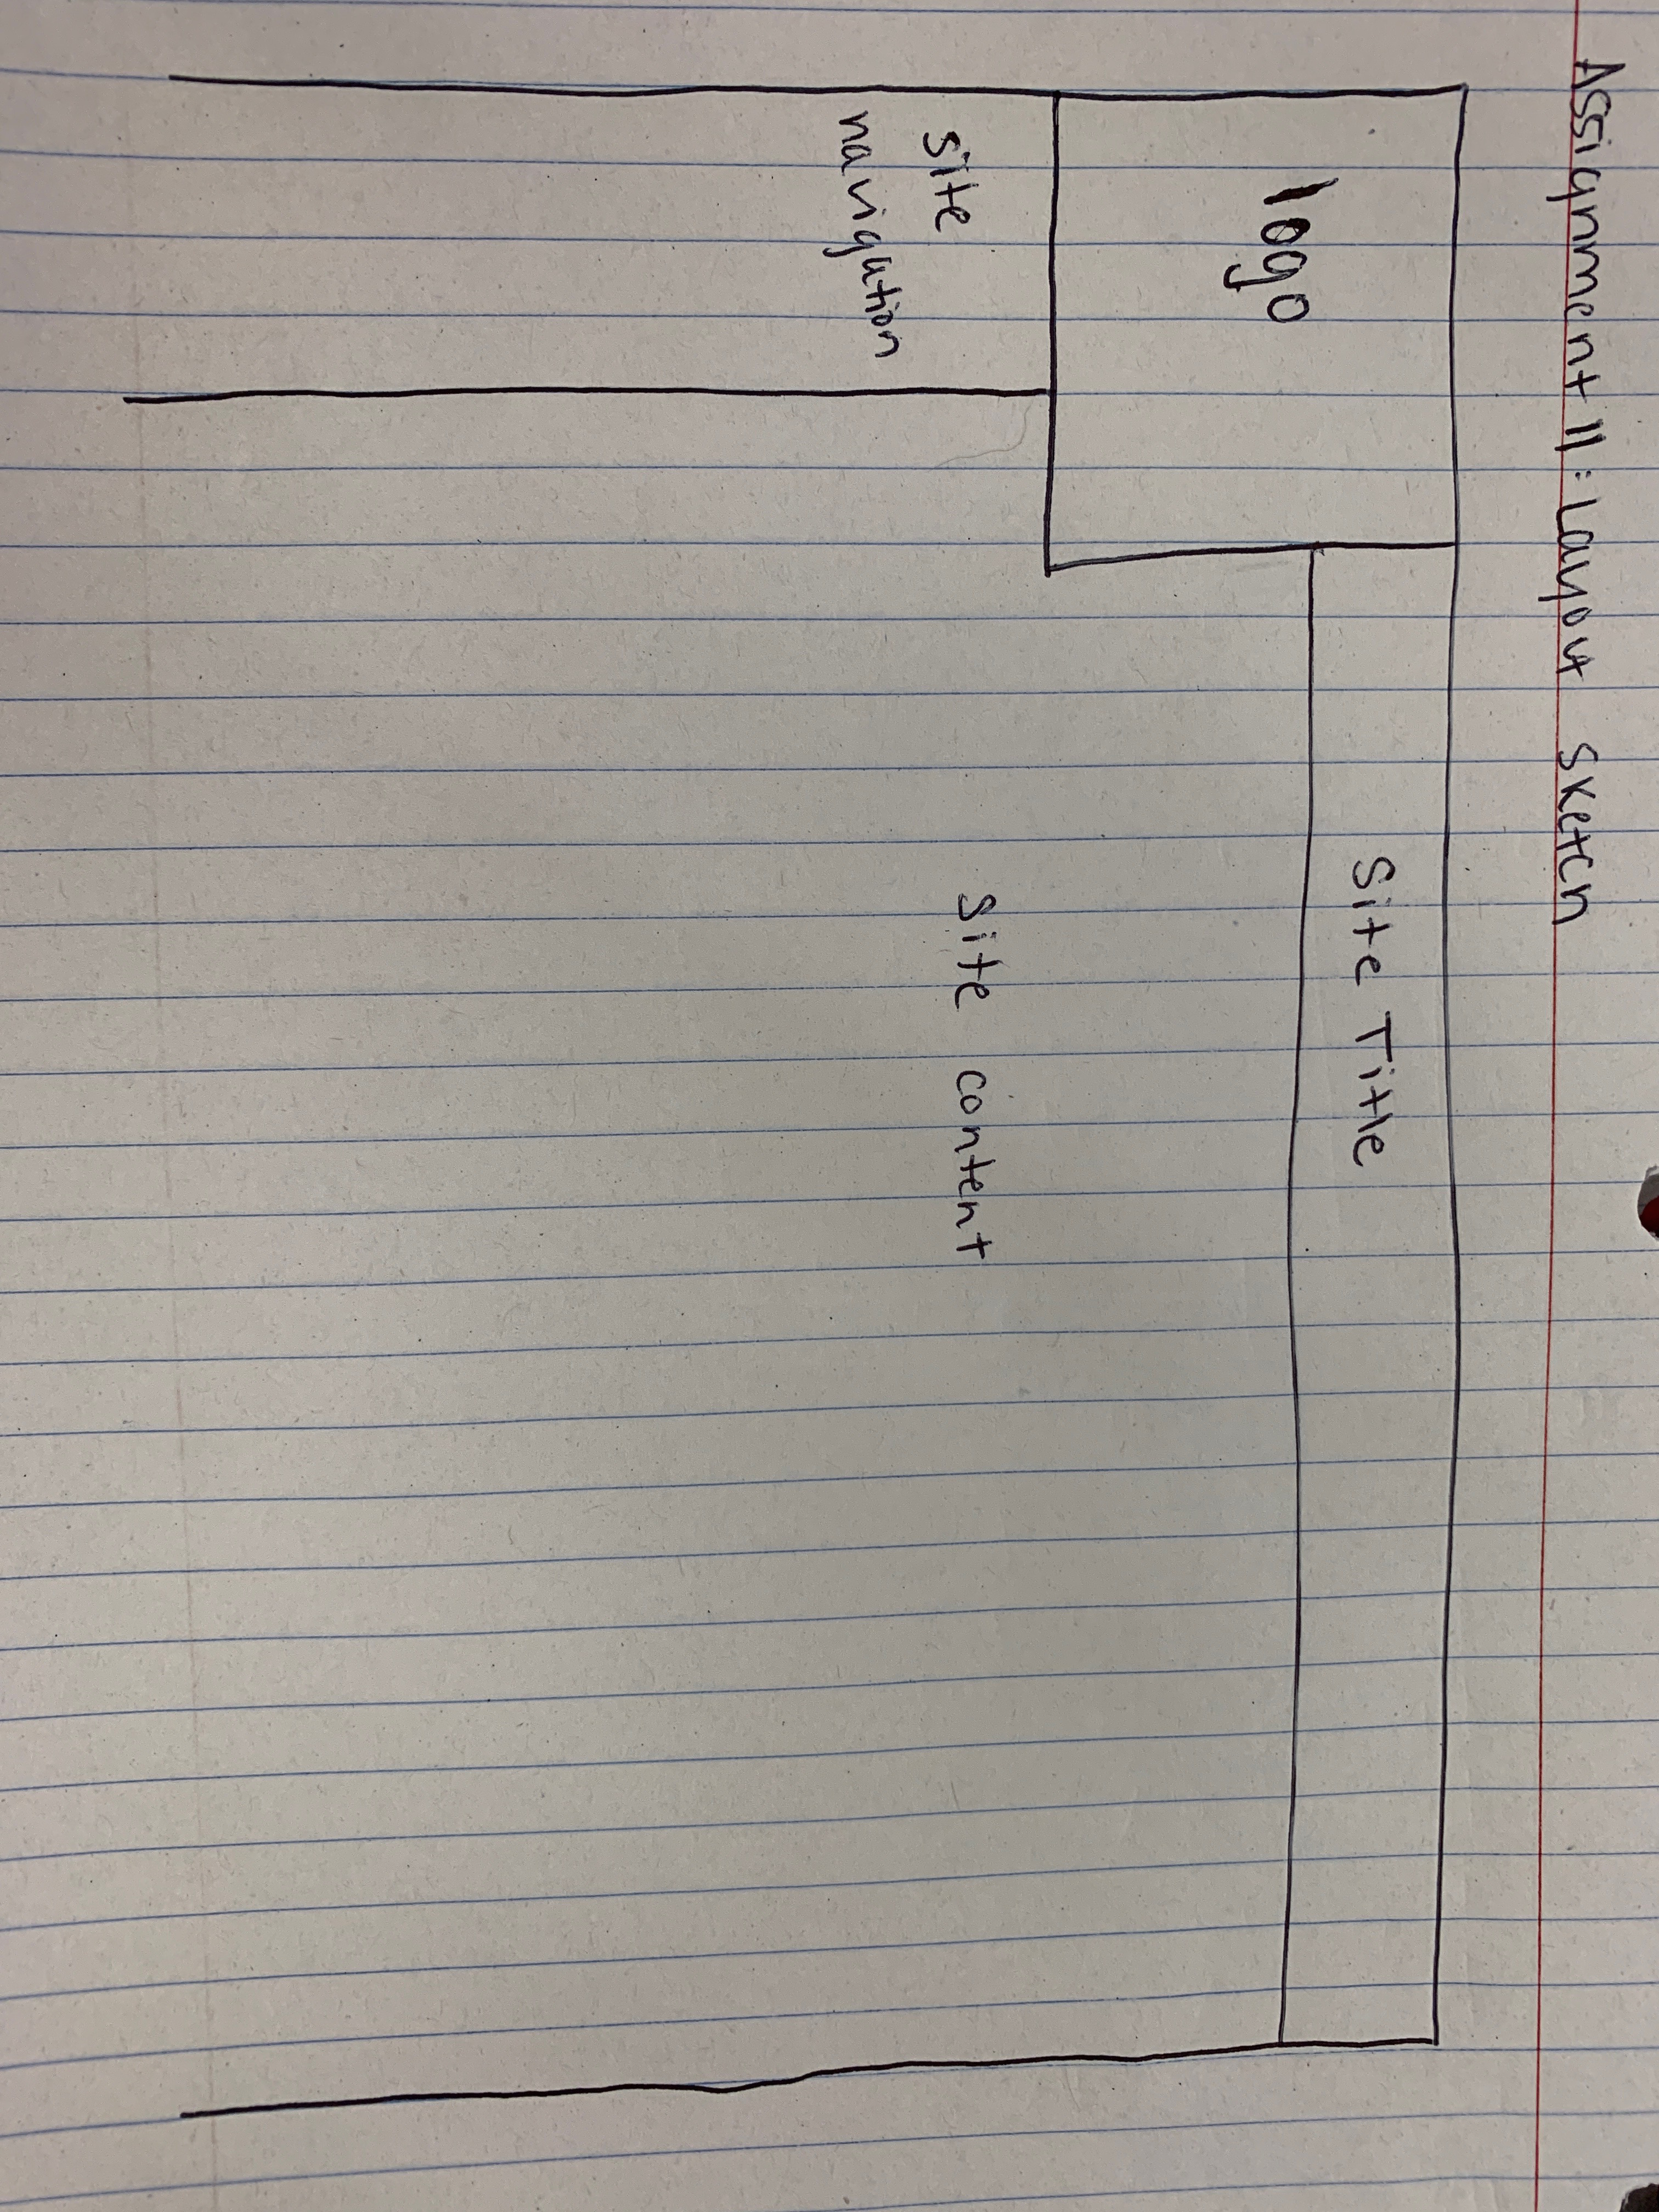 Assignment 11: Layout Sketch
logo
Site Title
Site
navigation
Site content